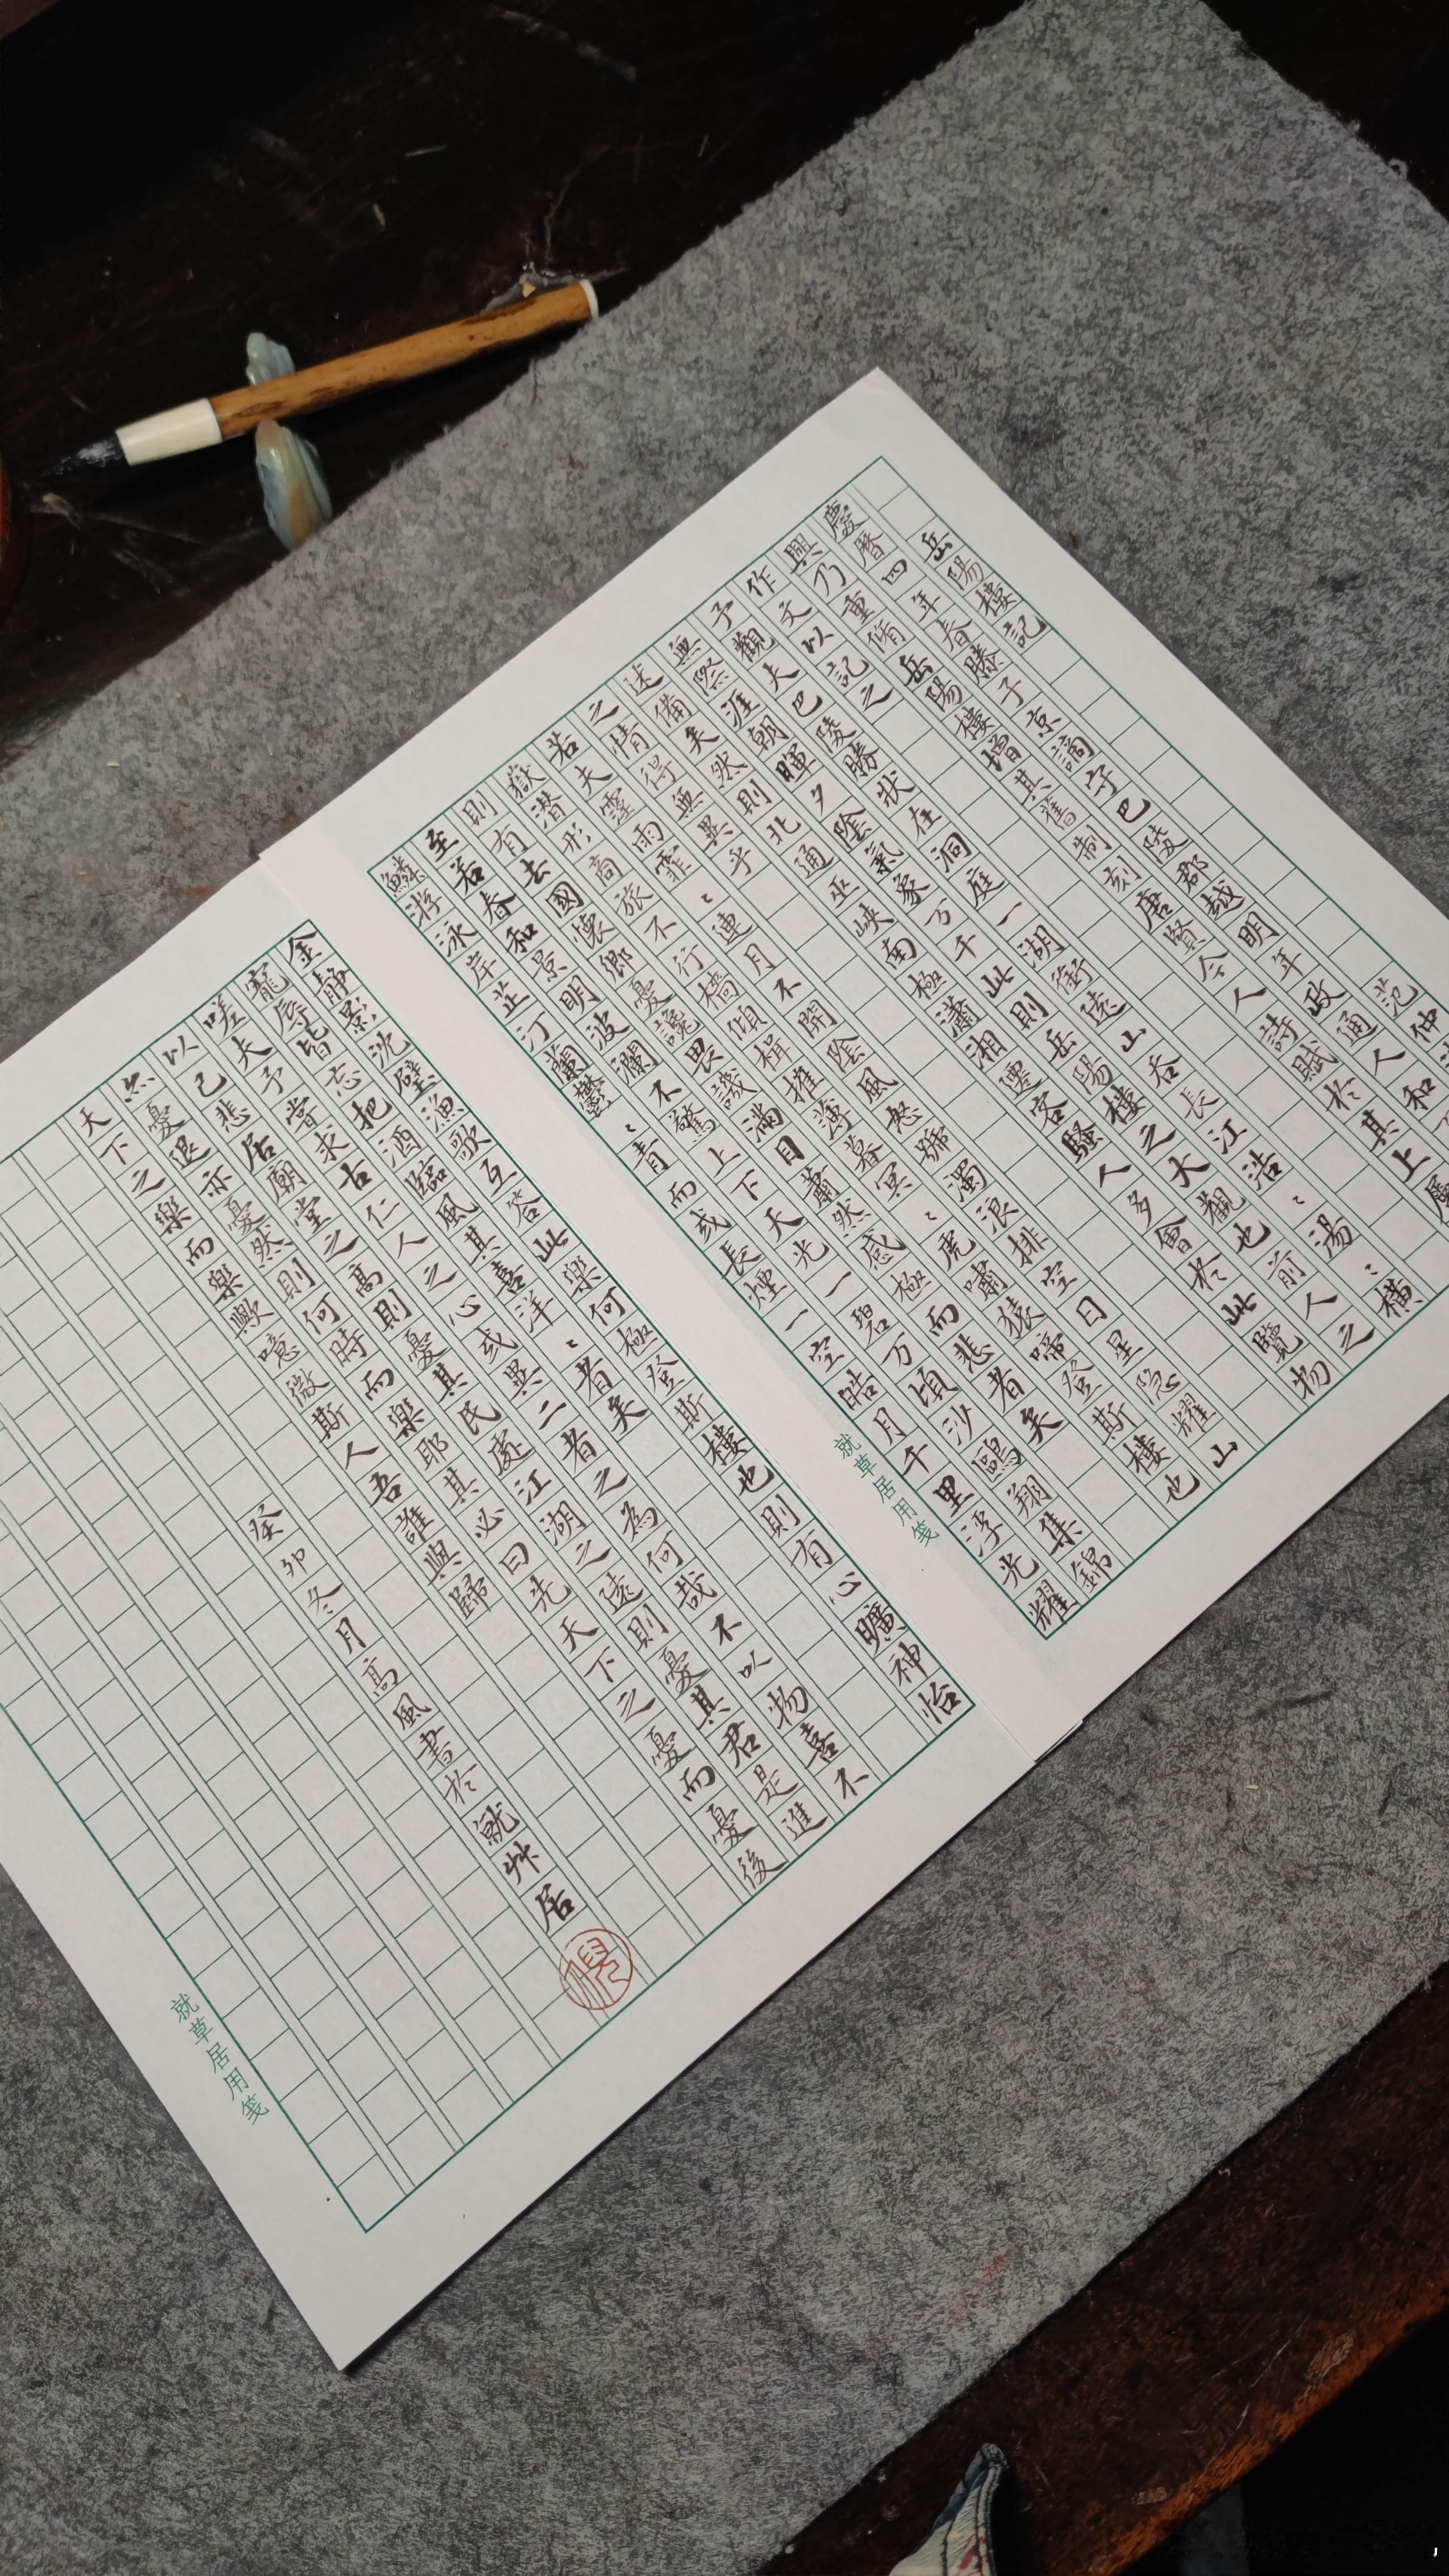 岳陽樓記 范仲
慶暦四年春滕子京謫守巴陵郡越明年政通人和
興乃重脩岳陽樓增其舊制刻唐賢今人詩賦於其上屬
作文以記之
予觀夫巴陵勝狀在洞庭一湖銜遠山吞長江浩〻湯〻橫
無際涯朝暉夕陰氣象万千此則岳陽樓之大觀也前人之
述備矣然則北通巫峽南極瀟湘遷客騷人多會於此覽物
之情得無異乎
若夫霪雨霏〻連月不開陰風怒號濁浪排空日星隐耀山
嶽潜形商旅不行檣傾楫摧薄暮冥〻虎嘯猿啼登斯樓也
則有去國懷鄉憂讒畏譏滿目蕭然感極而悲者矣
至若春和景明波瀾不驚上下天光一碧万頃沙鷗翔集錦
鱗游泳岸芷汀蘭鬱〻青而或長煙一空皓月千里浮光耀
就草居用箋
金静影沈璧漁歌互答此樂何極登斯樓也則有心曠神怡
寵辱皆忘把酒臨風其喜洋〻者矣
嗟夫予嘗求古仁人之心或異二者之為何哉不以物喜不
以己悲居廟堂之高則憂其民處江湖之遠則憂其君是進
亦憂退亦憂然則何時而樂耶其必曰先天下之憂而憂後
天下之樂而樂歟噫微斯人吾誰與歸
癸卯冬月高風書於就艸居
就草居用箋